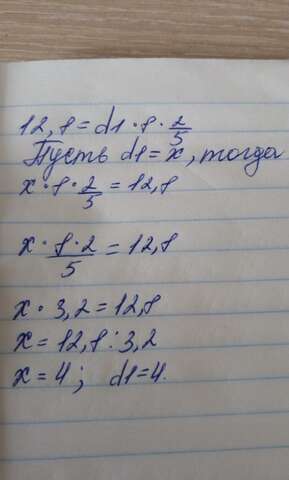 12,8 = d1 · 8 · 2/5
Пусть d1 = x, тогда
x · 8 · 2/5 = 12,8
x · 8 · 2/5 = 12,8
x · 3,2 = 12,8
x = 12,8 : 3,2
x = 4; d1 = 4.